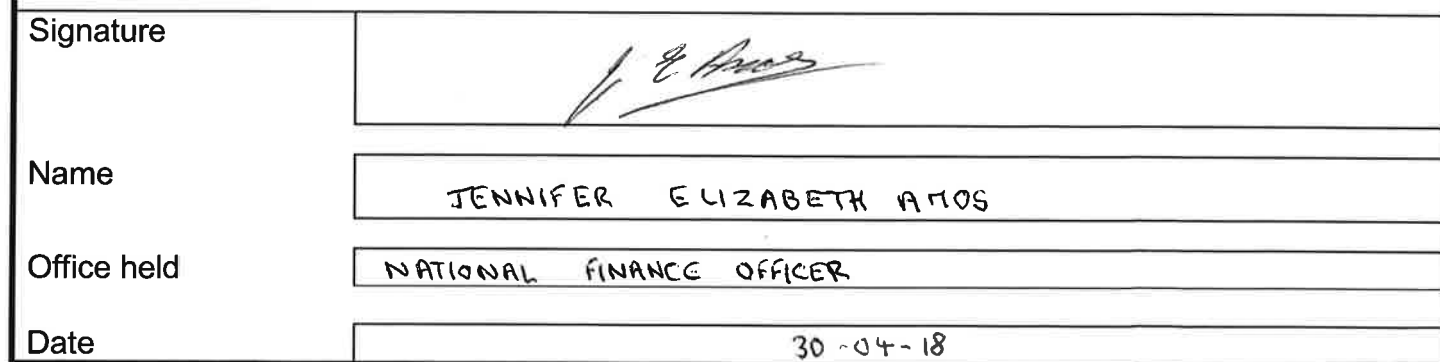 Signature J E Amos
Name JENNIFER ELIZABETH AMOS
Office held NATIONAL FINANCE OFFICER
Date 30-04-18